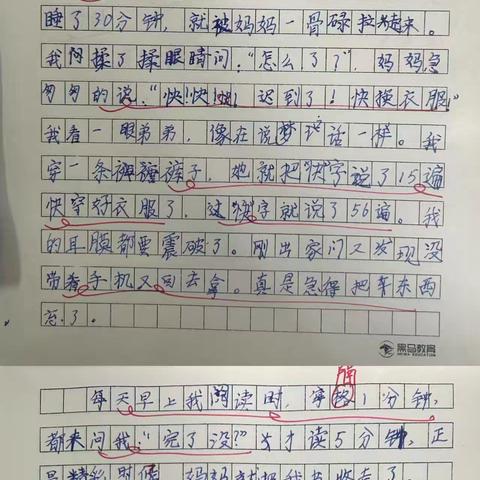 睡了30分钟，就被妈妈一骨碌拉起来。
我揉了揉眼睛问："怎么了？"，妈妈急
匆匆的说："快！快！快！迟到了！快换衣服。"
我看一眼弟弟，像在说梦话一样。我
穿一条裤子，她就把"快"字说了15遍
快穿好衣服了，这"快"字就说了56遍。我
的耳膜都要震破了。刚出家门又发现没
带手机又回去拿。真是急得把东西
忘了。
黑马教育
HEIMA EDUCATION
隔
每天早上我阅读时，字格1分钟，
都来问我："完了没？"才读5分钟，正
是精彩时候，妈妈就把我书收走了。